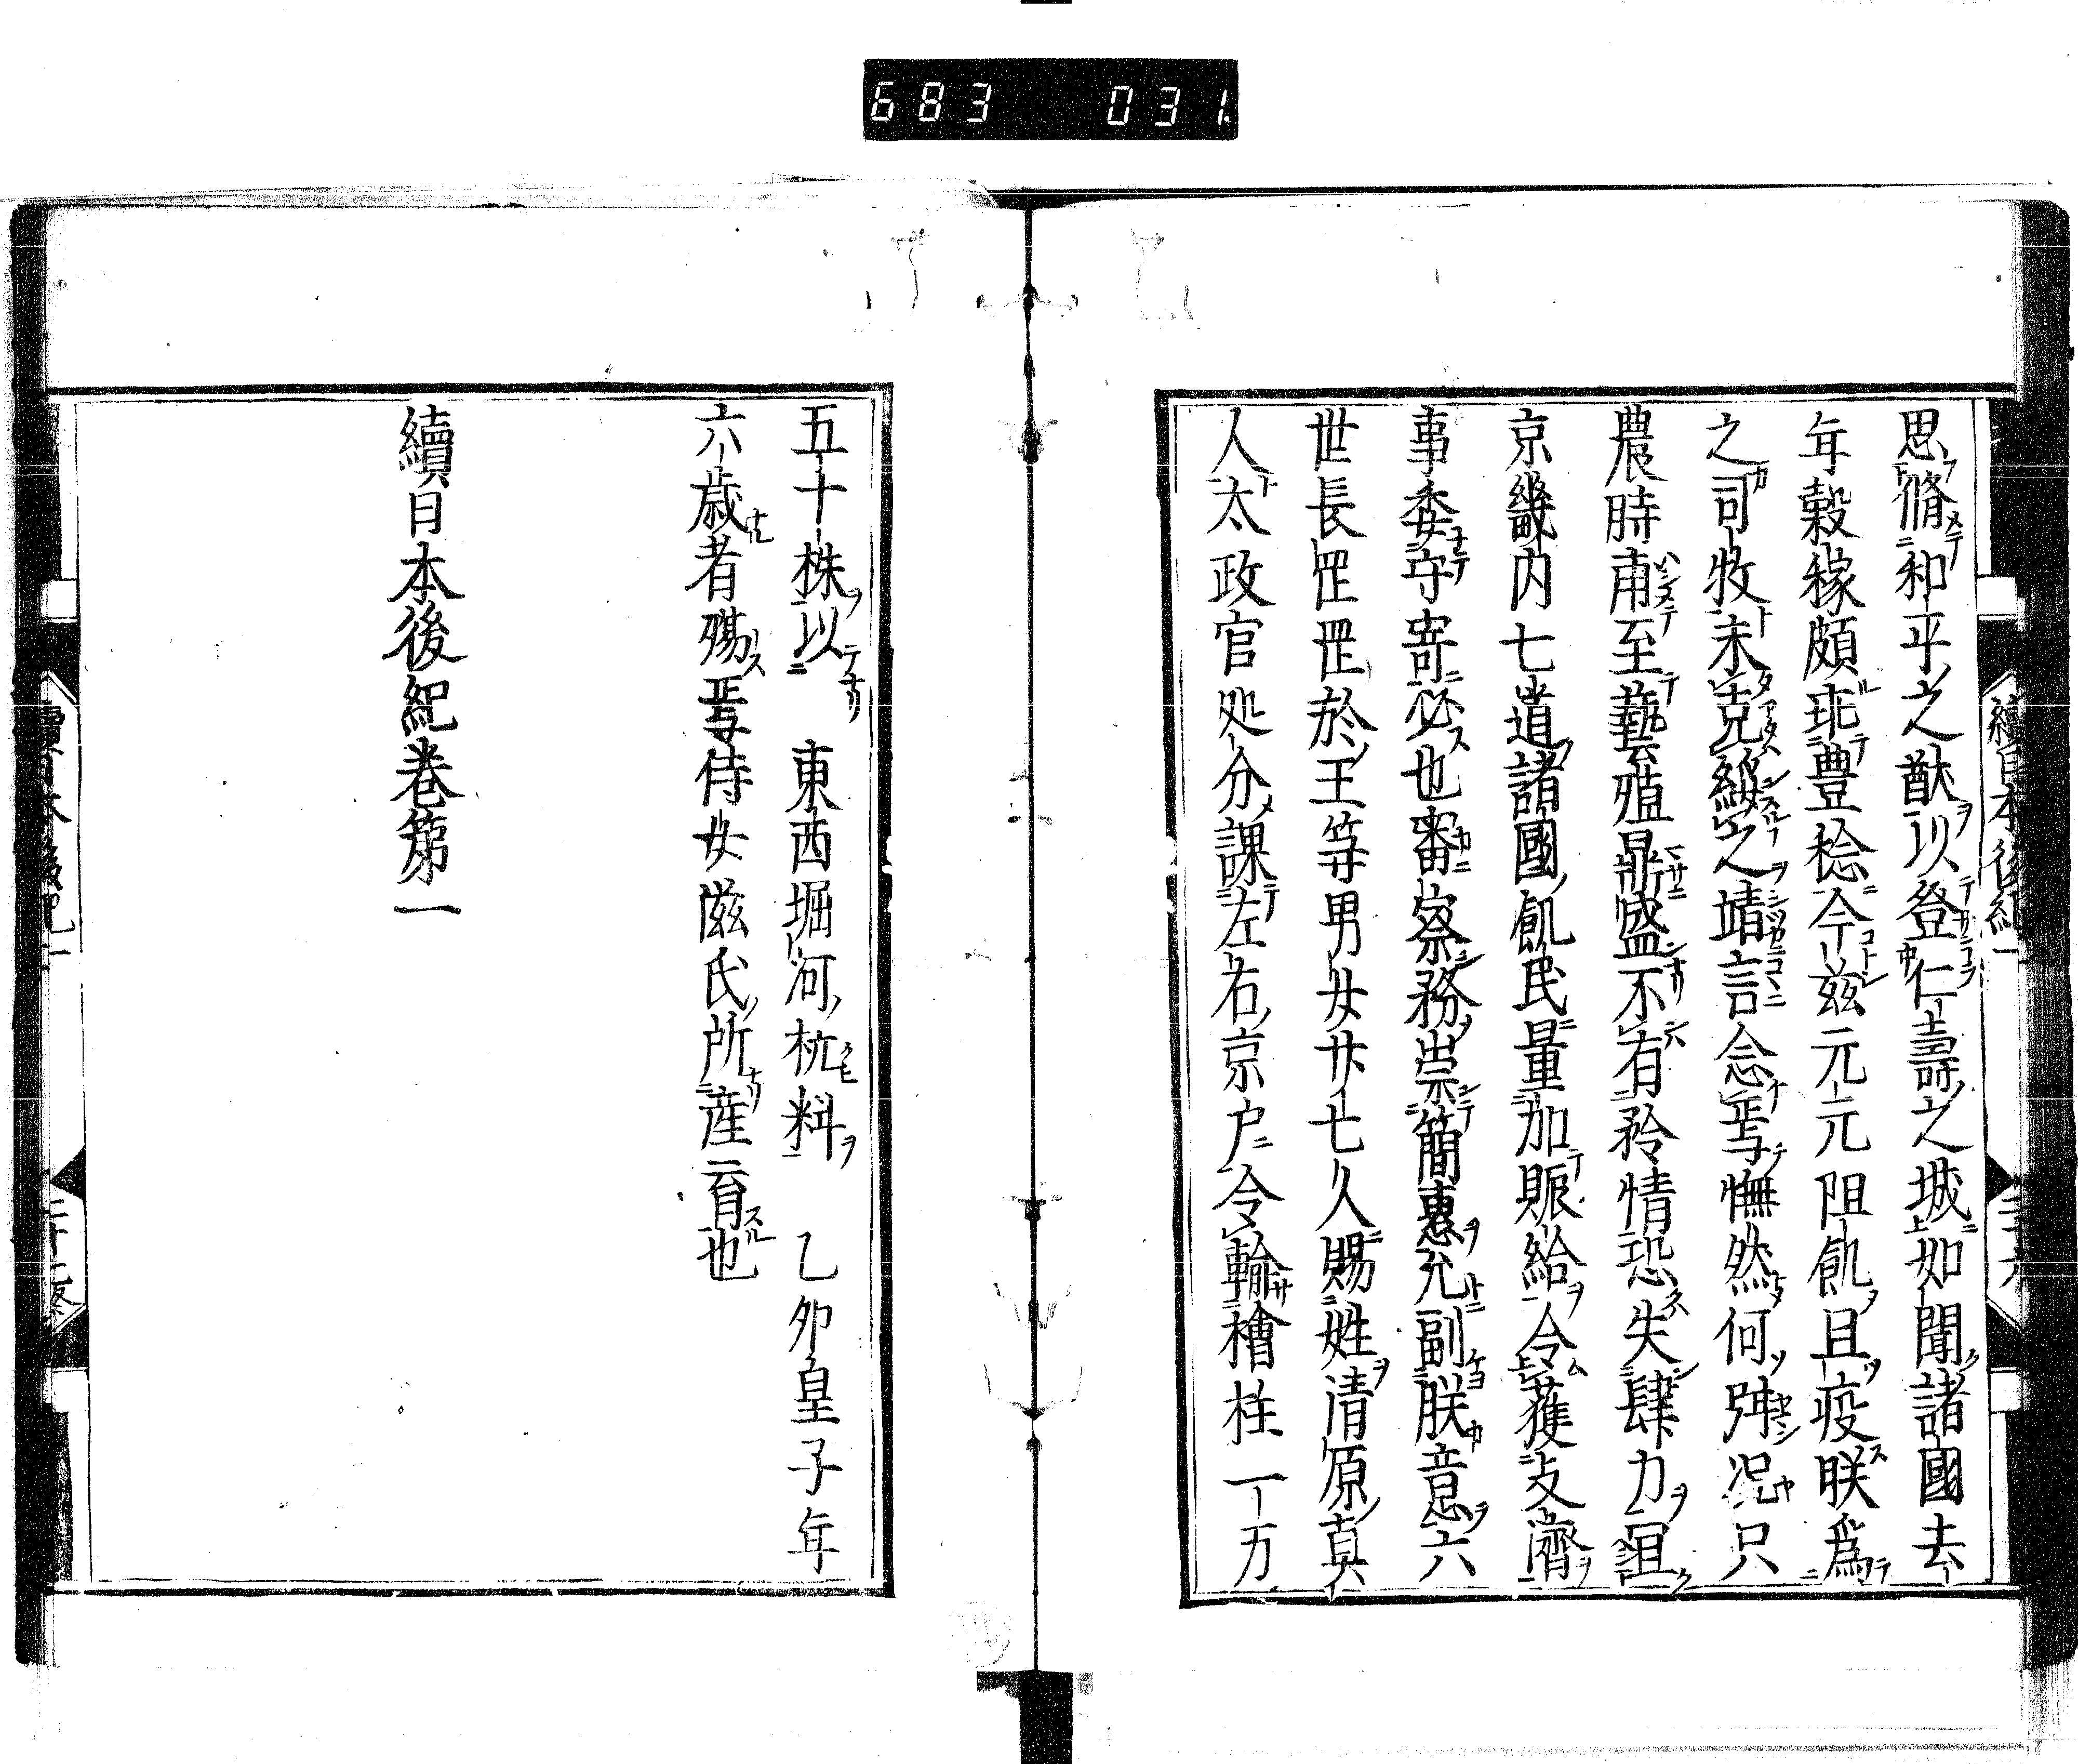 683 031
思脩和平之猷以登仁壽之城如聞諸國去
年穀稼頗乖豊稔今茲元元阻飢且疫朕爲
之司牧未克綏之靖言念焉憮然何弭况只
農時甫至藝殖鼎盛不有矜情恐失肆力誼
京畿内七道諸國飢民量加賑給令獲支濟
事委守寄必也審察務崇簡惠允副朕意六
世長罡罡於王等男女廿七人賜姓清原真
人太政官処分課左右京戸令輸檜柱一万
五十株以 東西堀河杭料 乙夘皇子年
六歳者殤焉侍女滋氏所産育也
續日本後紀巻第一